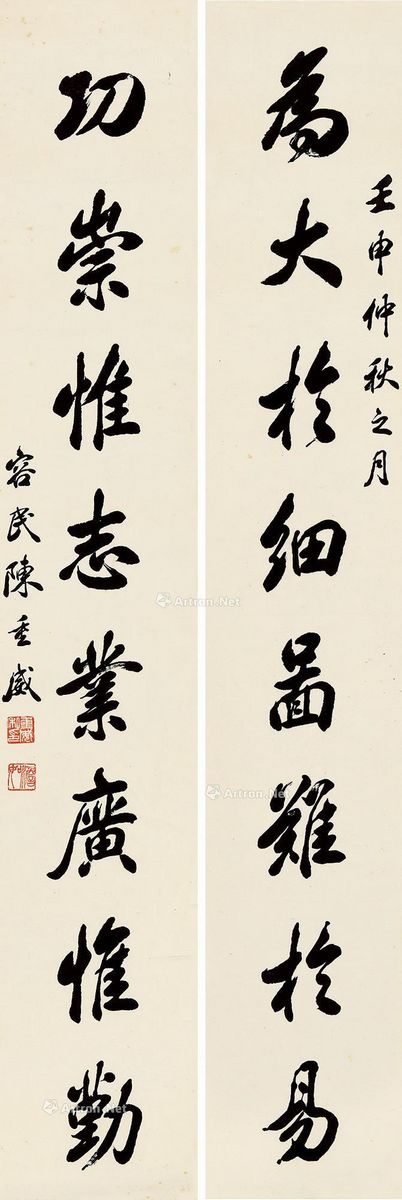 壬申仲秋之月
為大於細啚難於易
功崇惟志業廣惟勤
容民陳重威
Artron.Net
Artron.Net
Artron.Net